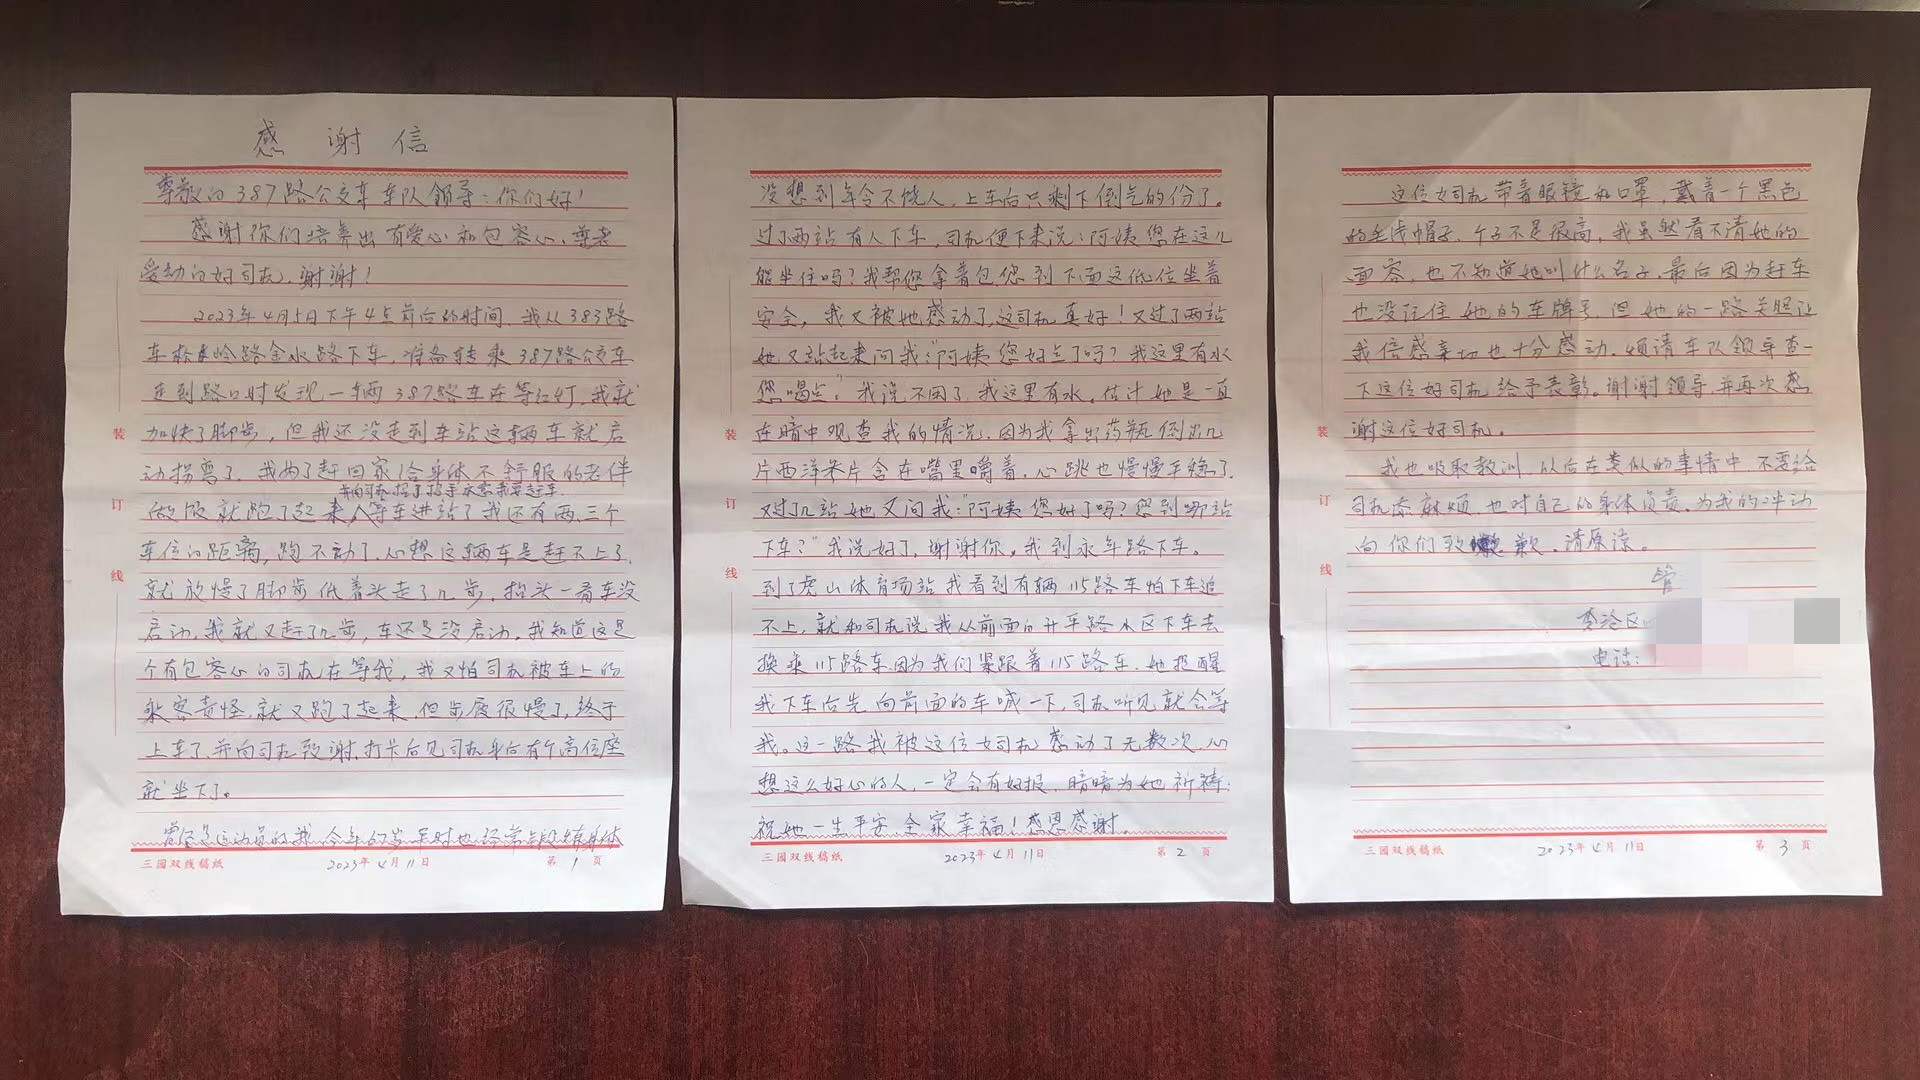 感谢信
尊敬的387路公交车车队领导：你们好！
感谢你们培养出有爱心和包容心、尊老
爱幼的好司机，谢谢！
2023年4月5日下午4点前后的时间，我从383路
车枣山岭路金水路下车，准备转乘387路公交车
走到路口时发现一车两387路车在等红灯，我就
加快了脚步，但我还没走到车站这辆车就启
动拐弯了，我为了赶回家给身体不舒服的老伴
并向司机招了招手示意我要赶车
做饭就跑了起来，等车进站了我还有两、三个
车位的距离，跑不动了，心想这辆车是赶不上了，
就放慢了脚步低着头走了几步，抬头一看车没
启动，我就又赶了几步，车还是没启动，我知道这是
个有包容心的司机在等我，我又怕司机被车上的
乘客责怪，就又跑了起来，但步履很慢了，终于
上车了，并向司机致谢，打卡后见司机身后有个高位座
就坐下了。
曾经是运动员的我，今年67岁平时也经常锻炼身体
三园双线稿纸 2023年4月11日 第1页
没想到年令不饶人，上车后只剩下倒气的份了。
过了两站有人下车，司机便下来说：阿姨您在这儿
能坐住吗？我帮您拿着包您到下面这低位坐着
安全，我又被她感动了，这司机真好！又过了两站
她又站起来问我："阿姨您好点了吗？我这里有水
您喝点"，我说不用了，我这里有水。估计她是一直
在暗中观查我的情况，因为我拿出药瓶倒出几
片西洋参片含在嘴里嚼着，心跳也慢慢平缓了，
又过了几站她又问我："阿姨您好了吗？您到哪站
下车？"我说好了，谢谢你。我到永年路下车。
到了虎山体育场站我看到有辆115路车怕下车追
不上，就和司机说我从前面的开平路小区下车去
换乘115路车，因为我们紧跟着115路车，她提醒
我下车后先向前面的车喊一下，司机听见就会等
我。这一路我被这位女司机感动了无数次，心
想这么好心的人，一定会有好报，暗暗为她祈祷：
祝她一生平安全家幸福！感恩感谢。
三园双线稿纸 2023年4月11日 第2页
这位女司机带着眼镜和口罩，戴着一个黑色
的毛线帽子，个子不是很高，我虽然看不清她的
面容，也不知道她叫什么名子，最后因为赶车
也没记住她的车牌号，但她的一路关照让
我倍感亲切也十分感动，烦请车队领导查一
下这位好司机给予表彰。谢谢领导，并再次感
谢这位好司机。
我也吸取教训，以后在类似的事情中，不要给
司机添麻烦，也对自己的身体负责，为我的冲动
向你们致歉，请原谅。
管
李沧区
电话：
三园双线稿纸 2023年4月11日 第3页
装
订
线
装
订
线
装
订
线